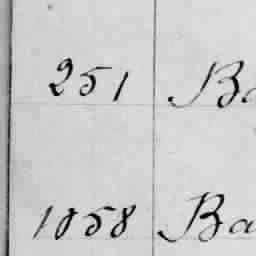 251 Ba
1058 Ba